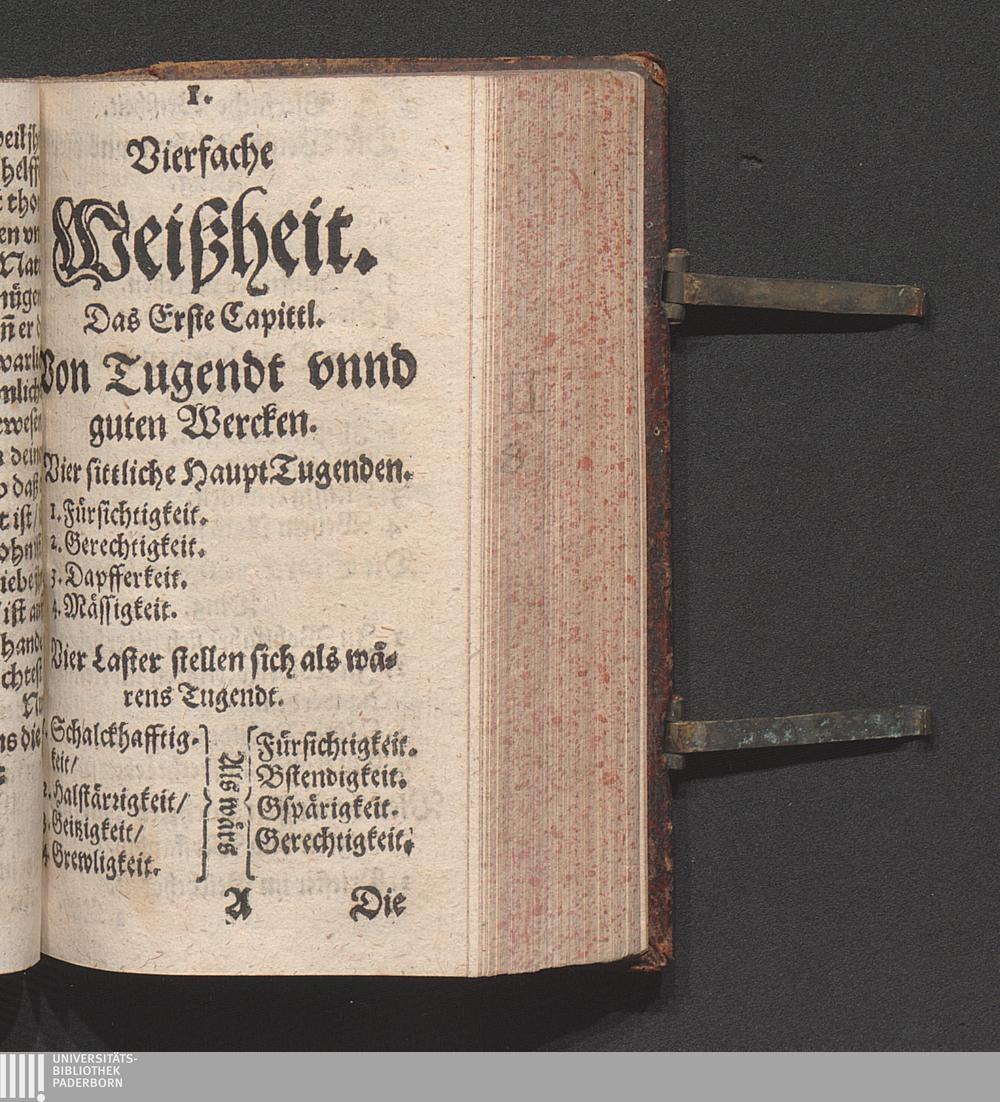 1.
Vierfache
Weißheit.
Das Erste Capittl.
Von Tugendt vnnd
guten Wercken.
Vier sittliche HauptTugenden.
1. Fürsichtigkeit.
2. Gerechtigkeit.
3. Dapfferkeit.
4. Mässigkeit.
Vier Laster stellen sich als wä-
rens Tugendt.
1. Schalckhafftig-
keit/
2. Halstärrigkeit/
3. Geitzigkeit/
4. Grewligkeit.
Als wärs
Fürsichtigkeit.
Bstendigkeit.
Gspärigkeit.
Gerechtigkeit.
A Die
UNIVERSITÄTS-
BIBLIOTHEK
PADERBORN